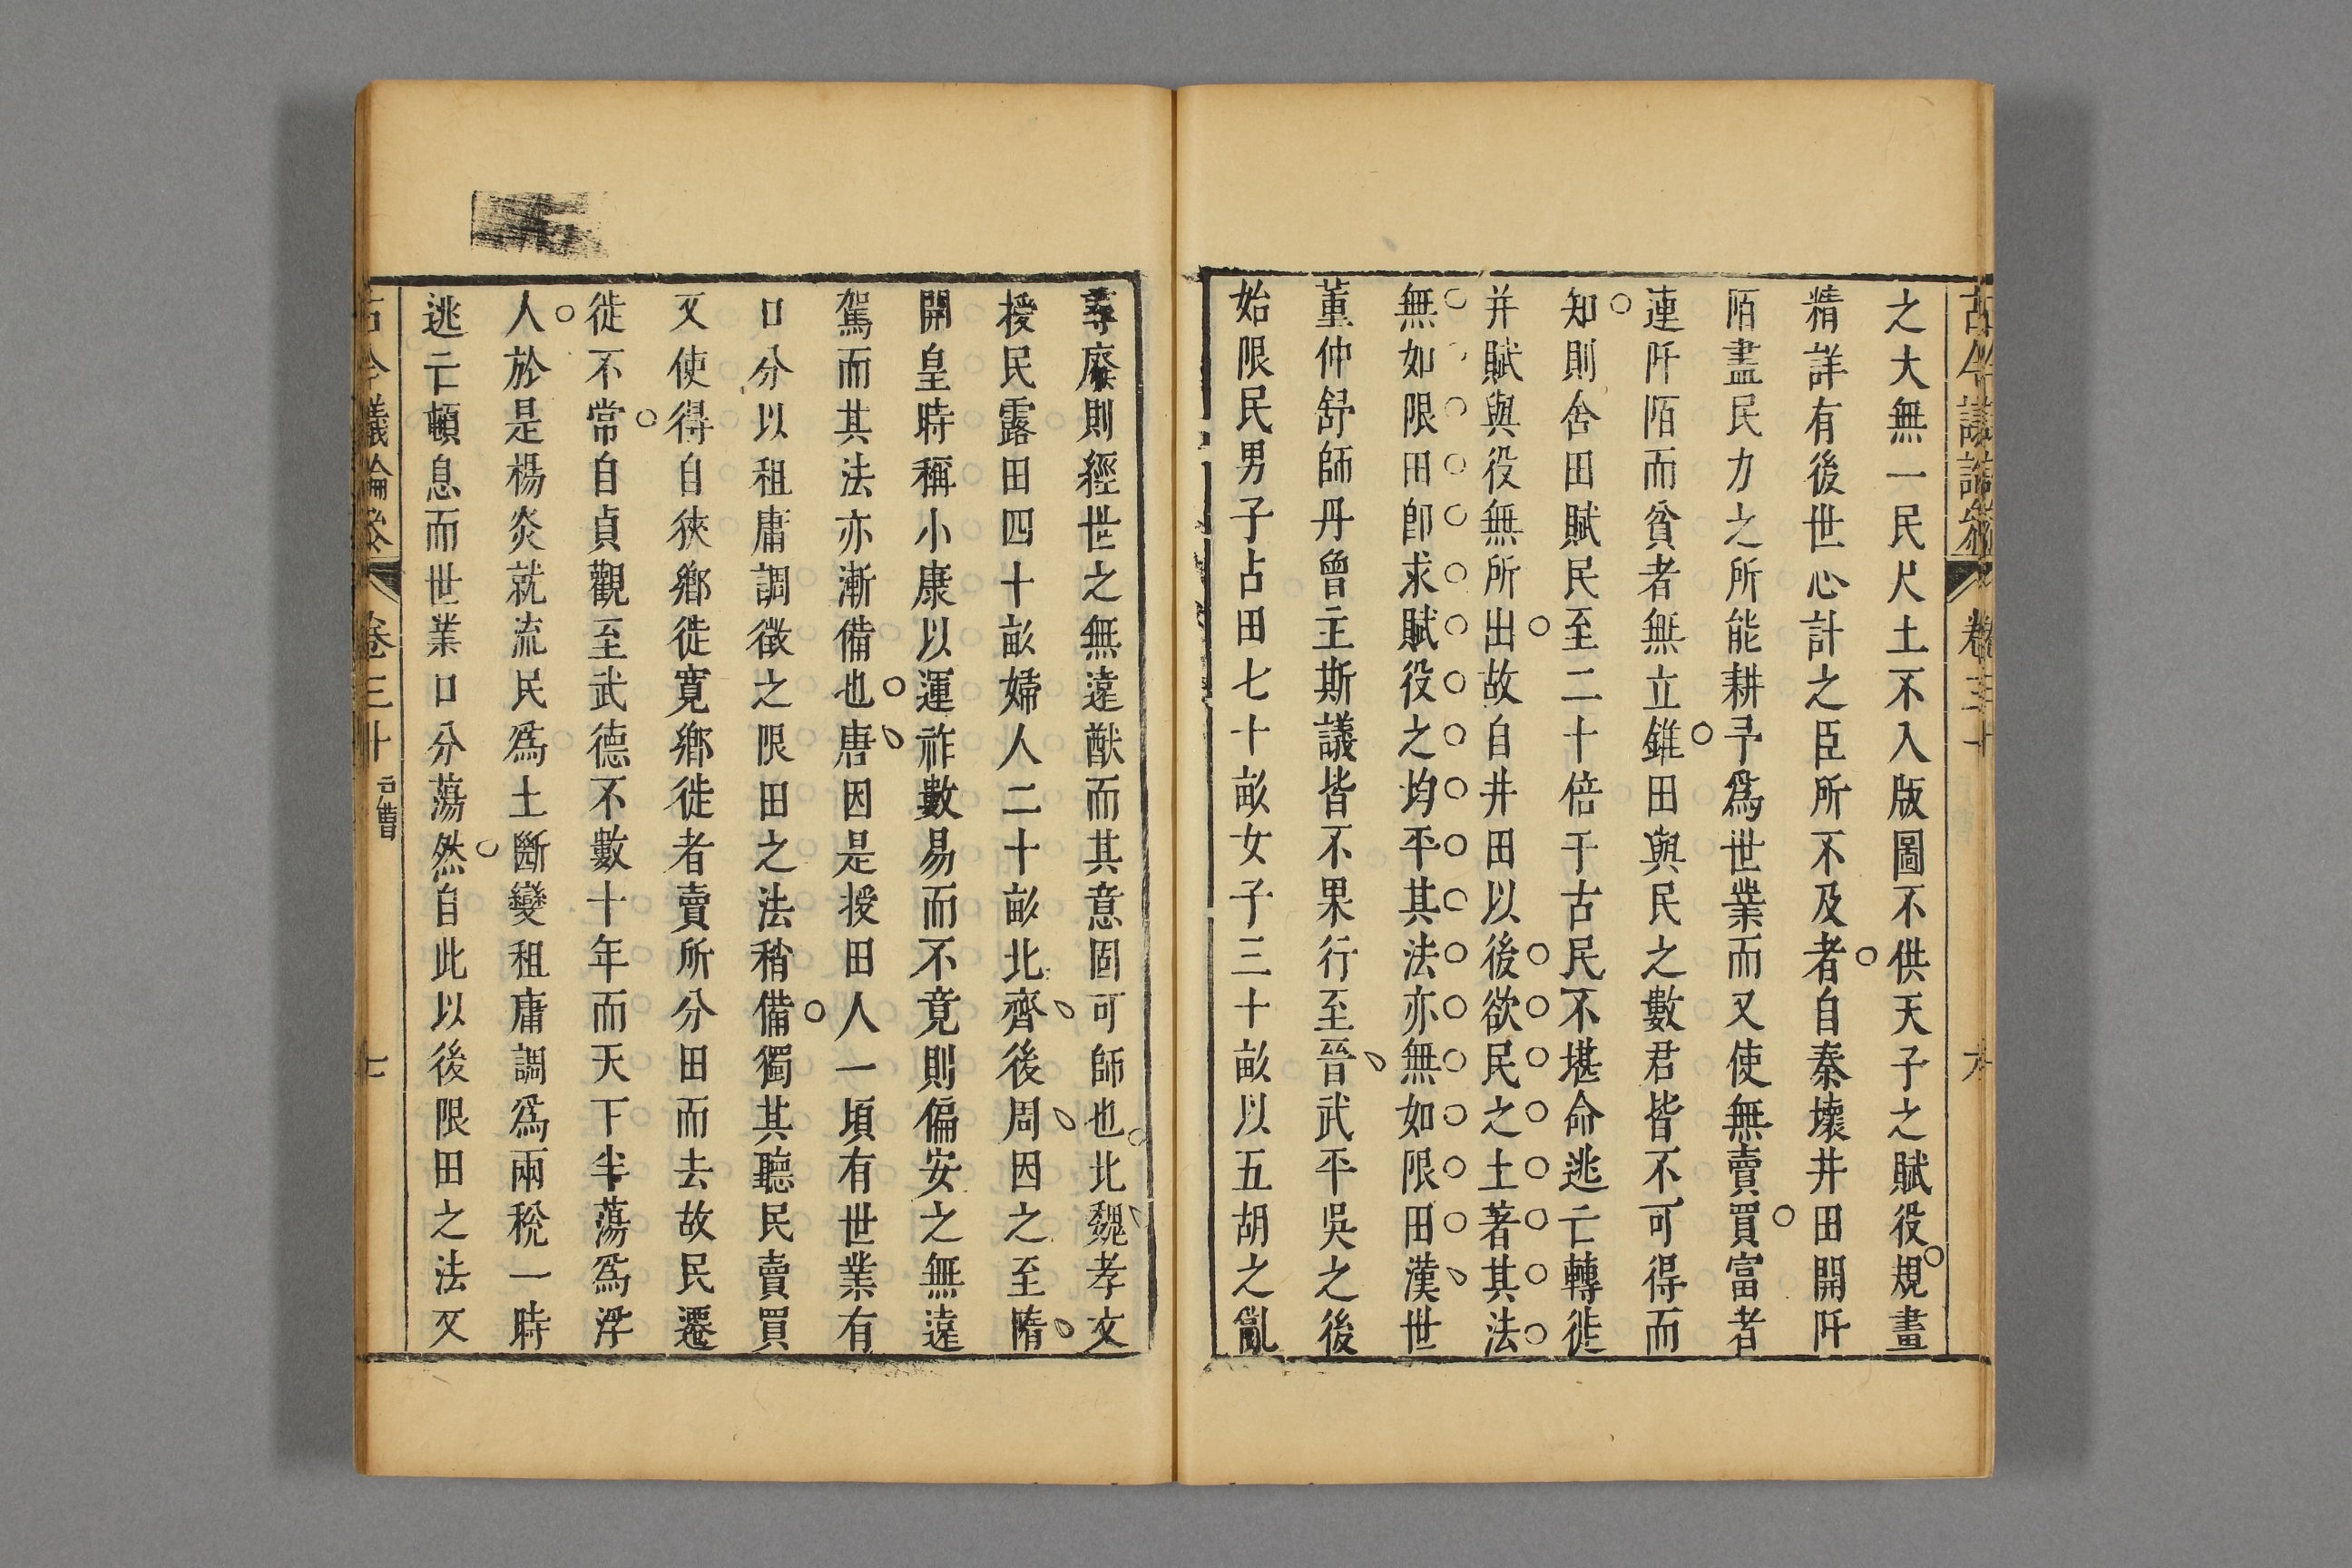 古今議論參 卷三十 六
之大無一民尺土不入版圖不供天子之賦役規畫
精詳有後世心計之臣所不及者自秦壞井田開阡
陌盡民力之所能耕予爲世業而又使無賣買富者
連阡陌而貧者無立錐田與民之數君皆不可得而
知則舍田賦民至二十倍于古民不堪命逃亡轉徙
并賦與役無所出故自井田以後欲民之土著其法
無如限田卽求賦役之均平其法亦無如限田漢世
董仲舒師丹曾主斯議皆不果行至晉武平吳之後
始限民男子占田七十畝女子三十畝以五胡之亂
尋廢則經世之無遠猷而其意固可師也北魏孝文
授民露田四十畝婦人二十畝北齊後周因之至隋
開皇時稱小康以運祚數易而不竟則偏安之無遠
駕而其法亦漸備也唐因是授田人一頃有世業有
口分以租庸調徵之限田之法稍備獨其聽民賣買
又使得自狹鄉徙寬鄉徙者賣所分田而去故民遷
徙不常自貞觀至武德不數十年而天下半蕩爲浮
人於是楊炎就流民爲土斷變租庸調爲兩稅一時
逃亡頓息而世業口分蕩然自此以後限田之法又
古今議論參 卷三十 七